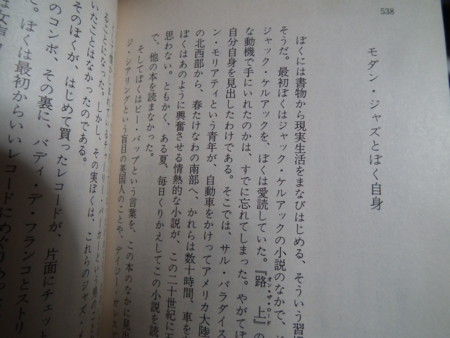 538
モダン・ジャズとぼく自身
ぼくには書物から現実生活をまなびはじめる、そういう習
そうだ。最初ぼくはジャック・ケルアックの小説のなかで、
ジャック・ケルアックを、ぼくは愛読していた。『路上』の
オン・ザ・ロード
な動機で手にいれたのかは、すでに忘れてしまった。やがてぼ
自分自身を見出したわけである。そこでは、サル・パラダイス
ン・モリアティという青年が、自動車をかってアメリカ大陸
の北西部から、春たけなわの南部へ、かれらは数十時間、車を
ぼくはあのように興奮させる情熱的な小説が、この二十世紀に
思わない。ともかく、ある夏、毎日くりかえしてこの小説を読
で、他の本を読まなかった。
そしてぼくはビー・バップという言葉を、この本のなかに見
ジ・シアリングという盲目の英国人のことや、デイジー・ガレス
パーカーという
る。しかし、その実ぼくは、これらのジャズ・メ
いたことはなかったのである。
そのぼくが、はじめて買ったレコードが、片面にチェット
のコンボ、その裏に、バディ・デ・フランコとストリ
ぼくは最初からいいレコードにめぐりあっ